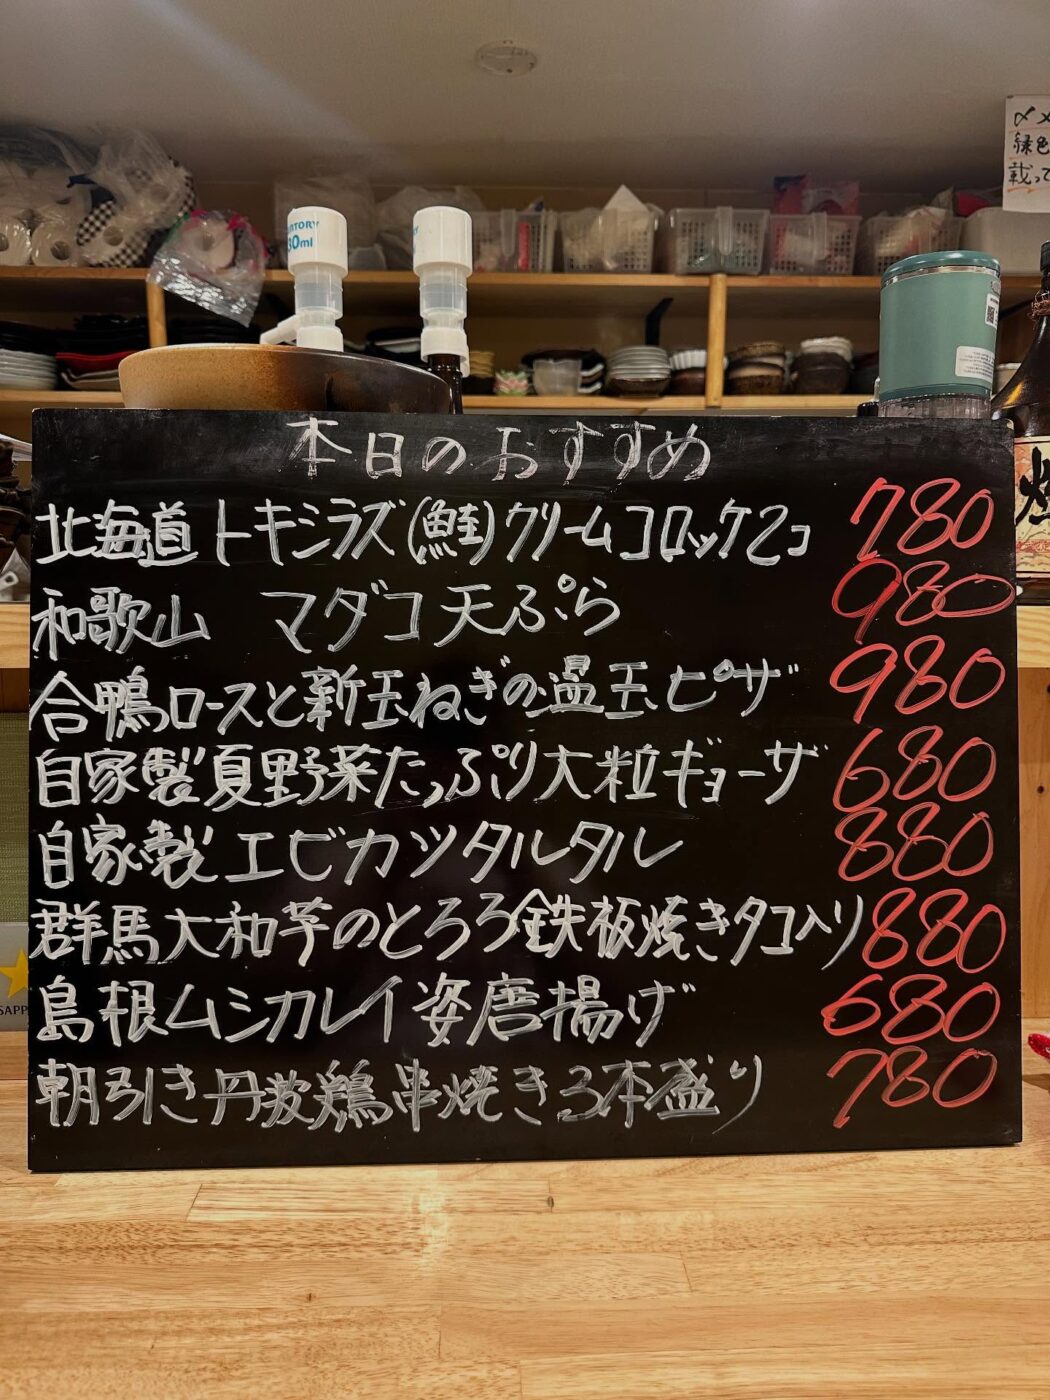 本日のおすすめ
北海道トキシラズ(鮭)クリームコロッケ2コ 780
和歌山 マダコ天ぷら 980
合鴨ロースと新玉ねぎの温玉ピザ 980
自家製夏野菜たっぷり大粒ギョーザ 680
自家製エビカツタルタル 880
群馬大和芋のとろろ鉄板焼きタコ入り 880
島根ムシカレイ姿唐揚げ 680
朝引き丹波鶏串焼き3本盛り 780
〆メ
緑色
載って
NTORY
30ml
SAPP